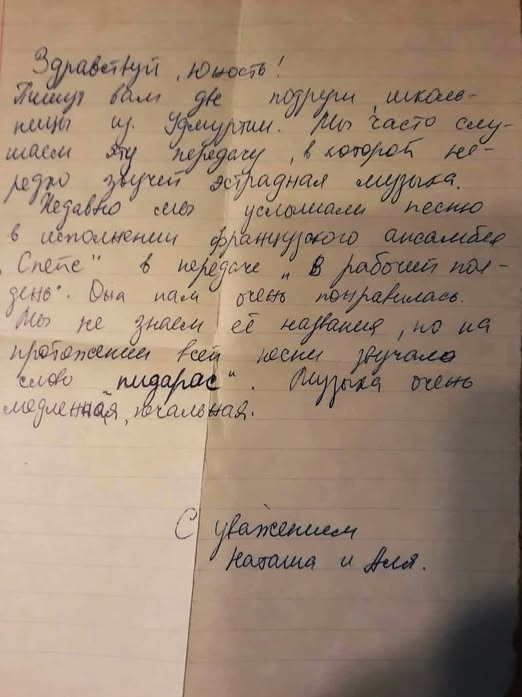 Здравствуй, Юность!
Пишут вам две подруги, школь-
ницы из Удмуртии. Мы часто слу-
шаем эту передачу, в которой не-
редко звучит эстрадная музыка.
Недавно мы услышали песню
в исполнении французского ансамбля
"Спейс" в передаче "В рабочий пол-
день". Она нам очень понравилась.
Мы не знаем её названия, но на
протяжении всей песни звучало
слово "пидарас". Музыка очень
медленная, печальная.
С уважением
Наташа и Аля.